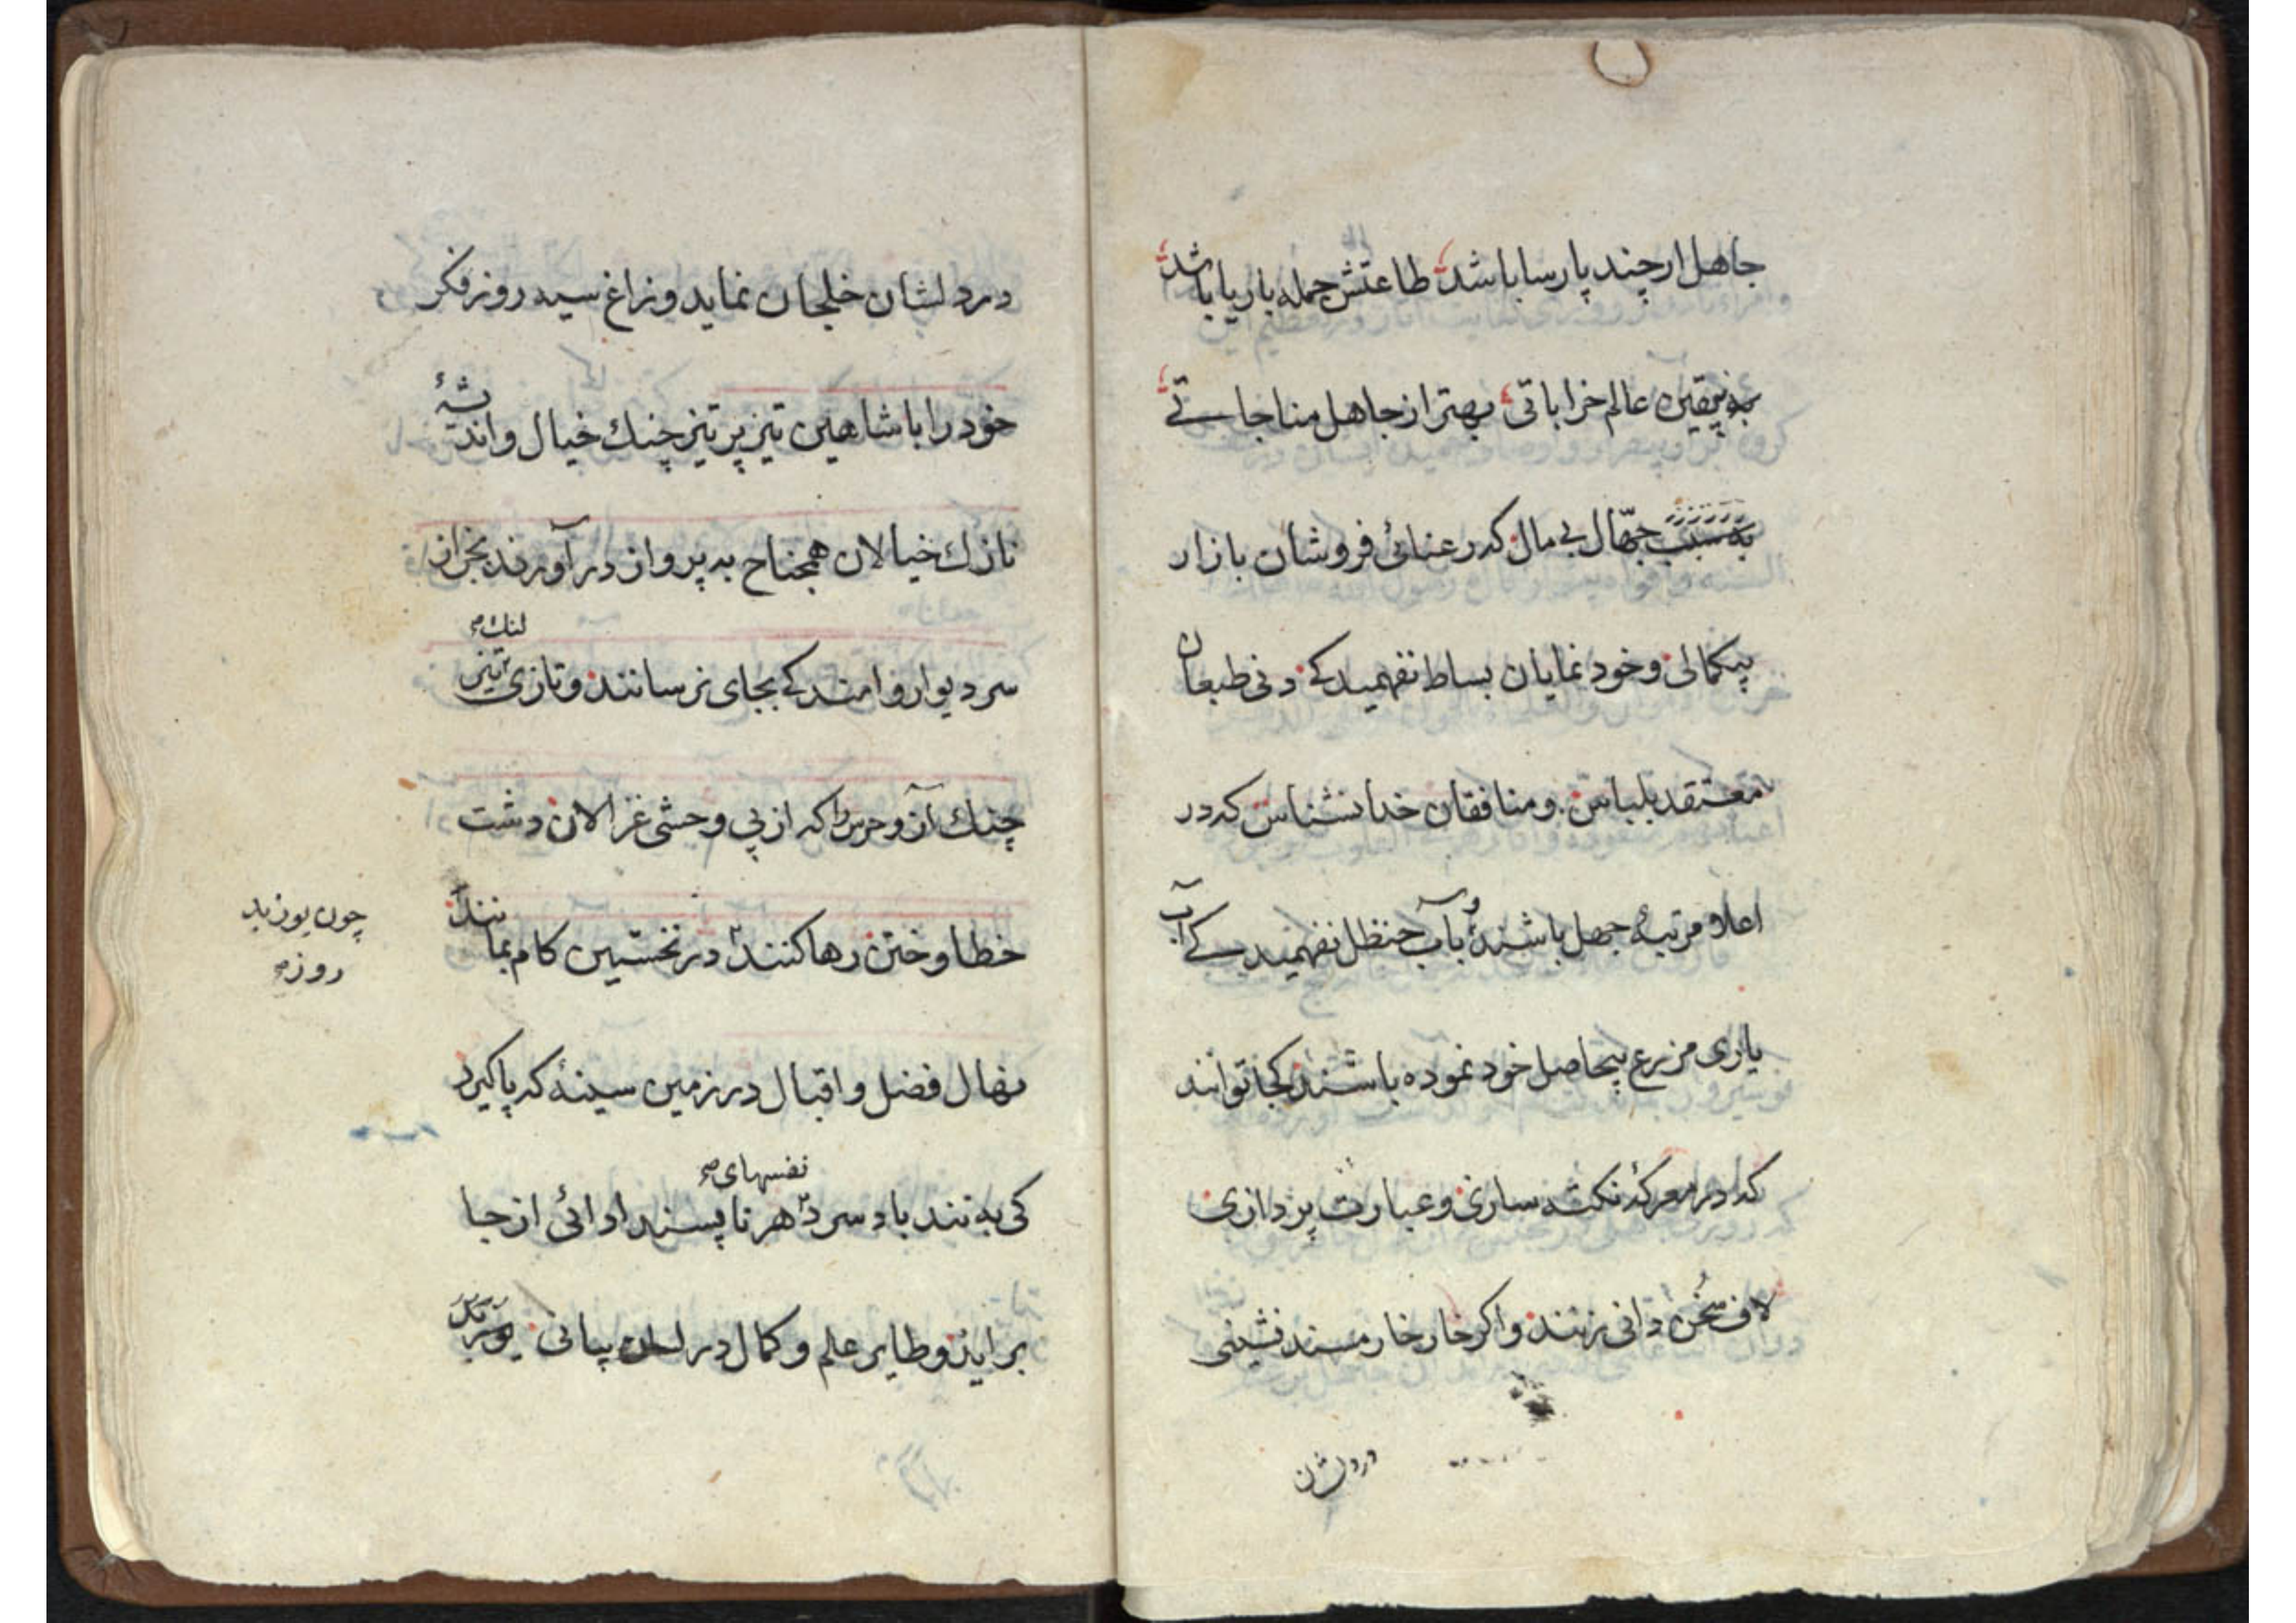 جاهل ار چند پارسا باشد طاعتش جمله با ریا باشد
به یقین عالم خراباتی بهتر از جاهل مناجاتے
جهّال بی مال که رعنائ فروشان بازار
بیکمالی و خود نمایان بساط نفهمیدکے دنی طبعان
معتقد بلباس و منافقان خدا نشناس که در
اعلا و مرتبهٔ جهل باشند و بآب حنظل نفهمیدکے آب
یاری مزرع بیحاصل خود نموده باشند کجا توانند
که در معرکهٔ نکته سازی و عبارت پردازی
لاف سخن دانی زنند و اکر خار خار مسند نشینی
در دلشان
در دلشان خلجان نماید و زاغ سیه روز فکر
خود را با شاهین تیز پر تیز چنك خیال و اندیشهٔ
نازك خیالان همجناح به پرواز در آورند بجز از
سر دیوار وامندکے بجای نرسانند و تازی تیز
لنك صح
چنك آز و حرص را که از پی وحشی غزالان دشت
خطا و ختن رها کنند در نخستین کام بمانند
چون یوز بد
روز صح
نهال فضل و اقبال در زمین سینهٔ که پا کیرد
نفسهای صح
کی به تند باد سرد هر ناپسند ادائی از جا
براید و طایر علم و کمال در بیانی